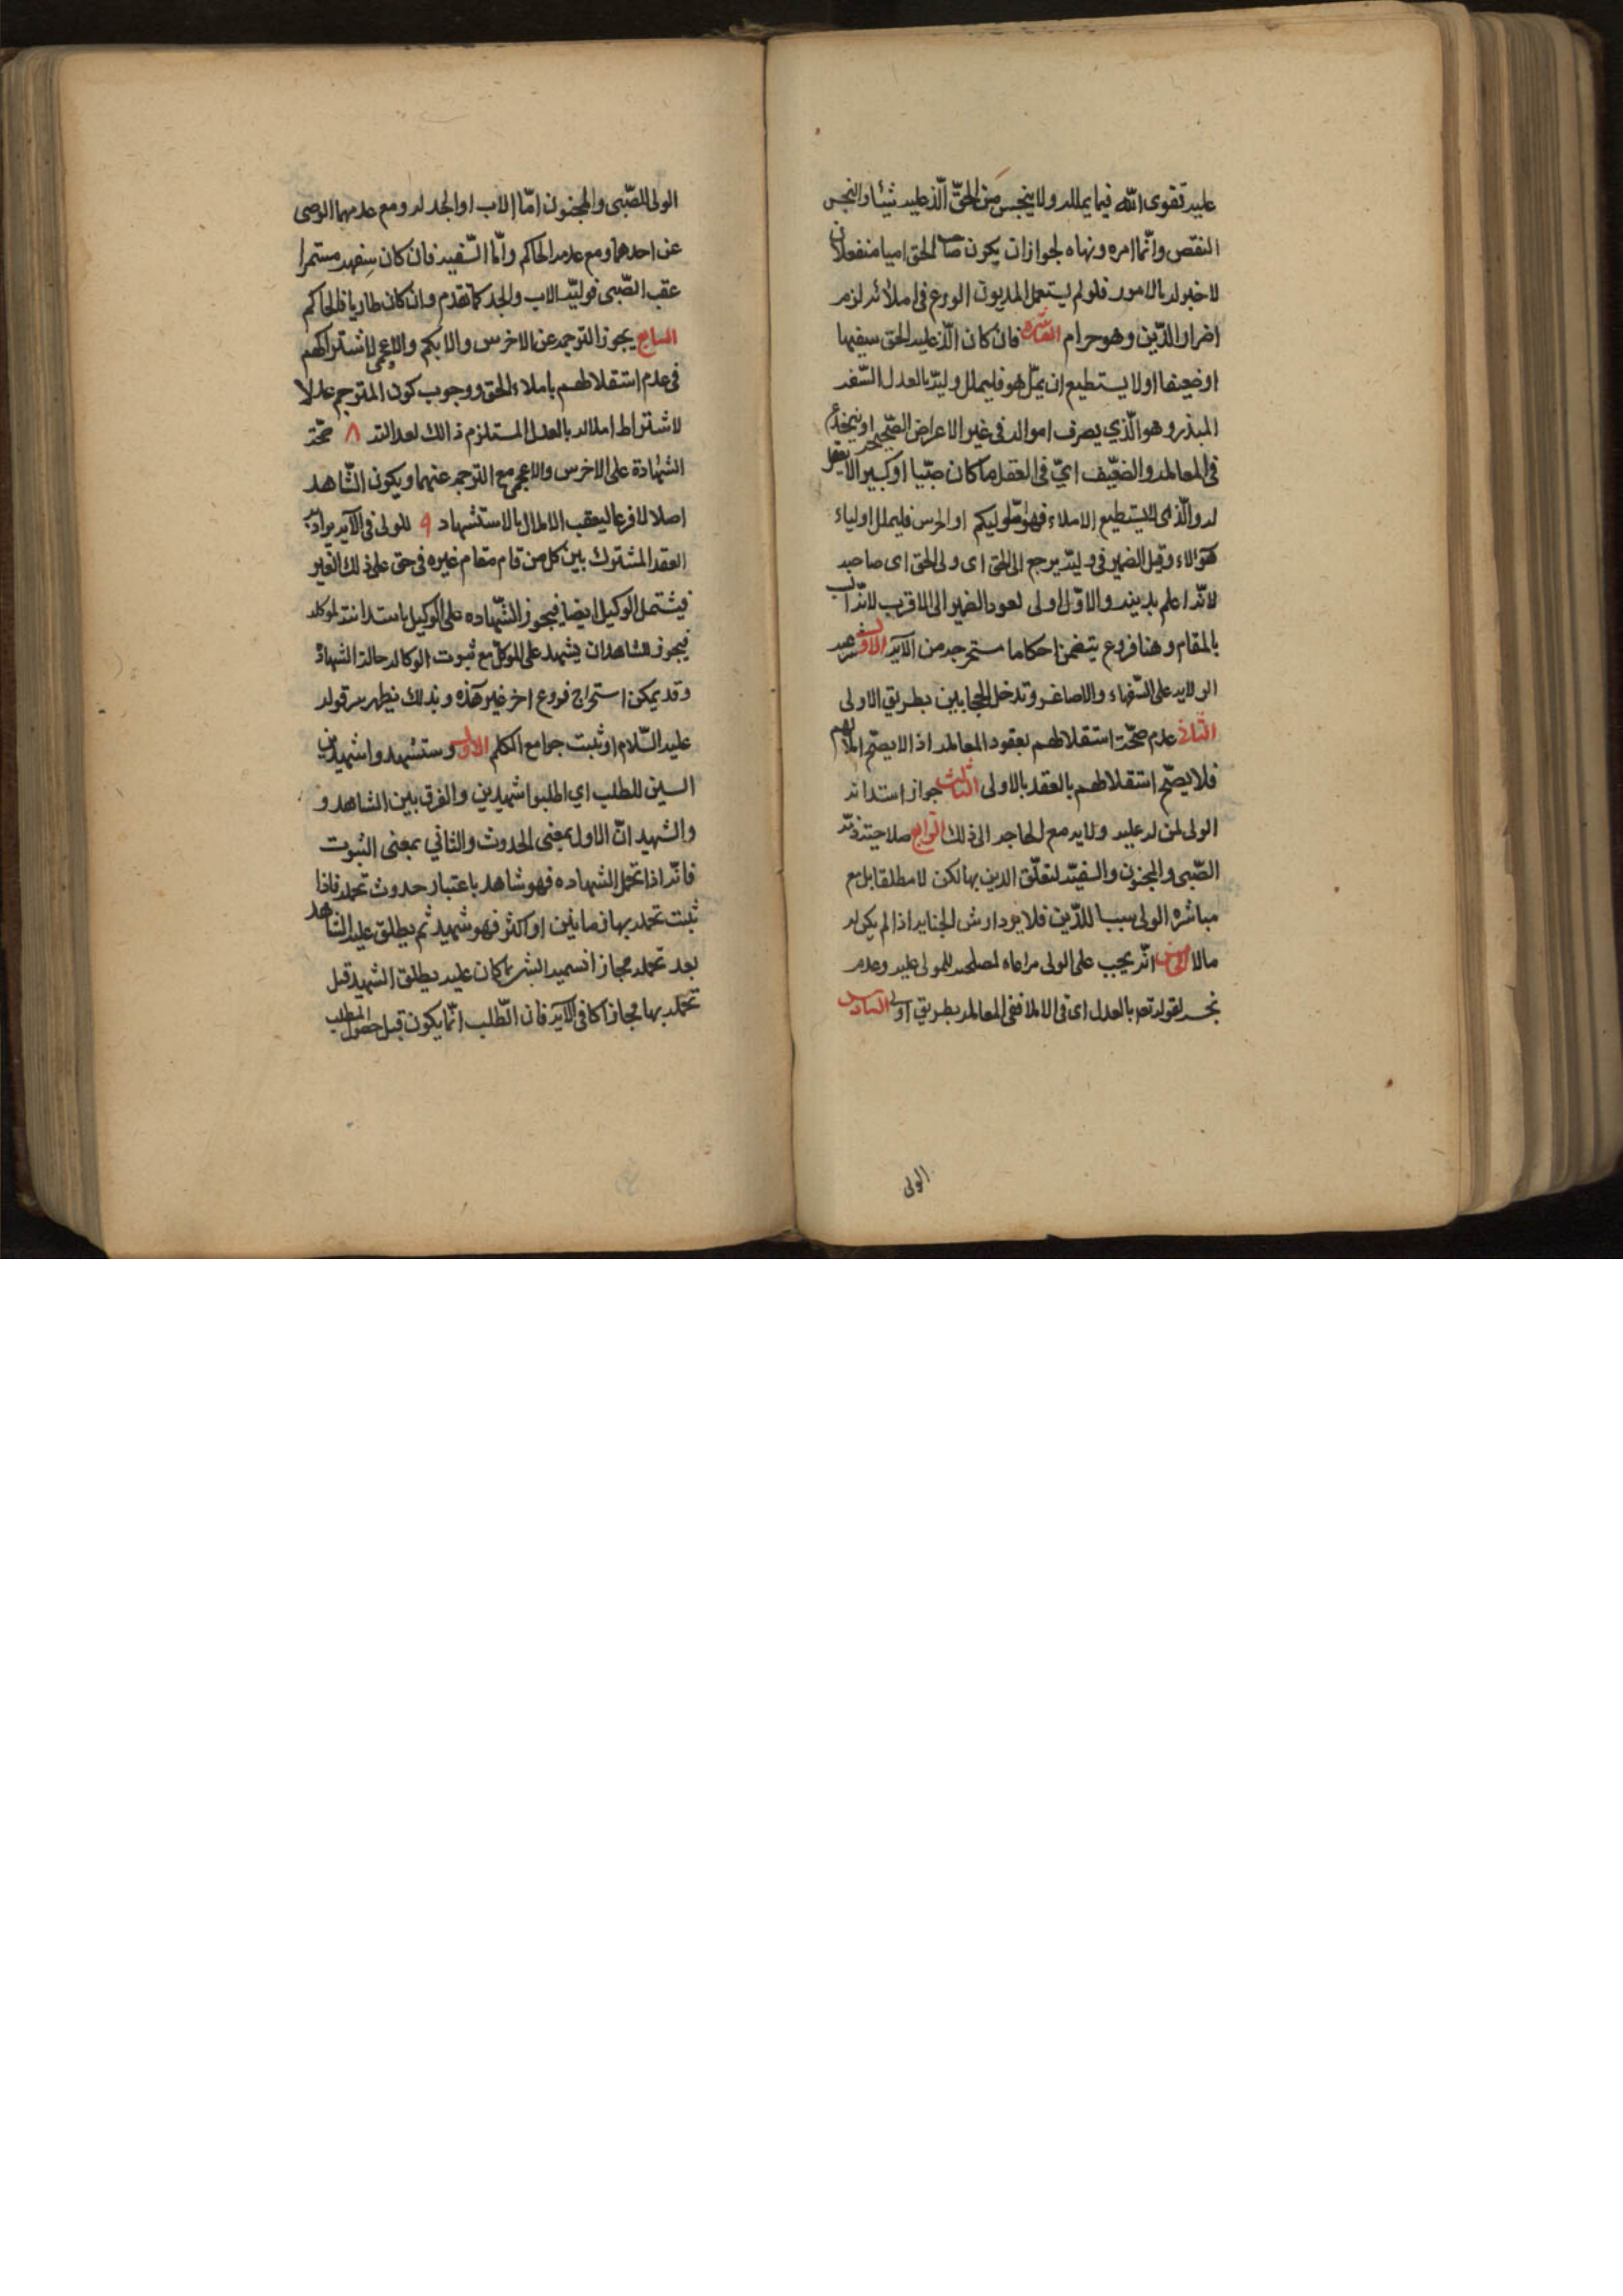 عليه تقوى الله فيما يملله ولا ينجس من الحق الذ عليه شيئا والنجس
النقص وانما امره ونهاه لجواز ان يكون صاحب الحق اميا منفعلا
لا خبرله بالامور فلو لم يستعمل المديون الورع في املائه لزم
اضرار الدين وهو حرام العاشره فان كان الذ عليه الحق سفيها
او ضعيفا او لا يستطيع ان يمل هو فليملل وليه بالعدل السفه
المبذر وهو الذي يصرف امواله في غير الاعراض الصحيحه او ينخدع
في المعامله والضعيف اي في العقل ما كان صبيا او كبيرا لا عقل
له والذى لا يستطيع الاملاء فهو او الخرس فليملل اولياء
هؤلاء وقيل الضمير في وليه يرجع الى الحق اى ولى الحق اى صاحبه
لانه اعلم بدينه والاول اولى لعود الضمير الى الاقرب لانه انسب
بالمقام وهنا فروع يتضمن احكاما مستخرجه من الآيه الاول شرعيه
الولايه على السفهاء والاصاغر وتدخل المجانين بطريق الاولى
الثانى عدم صحة استقلالهم بعقود المعامله اذ لا يصح املالهم
فلا يصح استقلالهم بالعقد بالاولى الثالث جواز استدانه
الولى لمن له عليه ولايه مع الحاجه الى ذلك الرابع صلاحيته ذمة
الصبي والمجنون والسفيه لتعلق الدين بها لكن لا مطلقا بل مع
مباشره الولى سببا للدين فلا يرد ارش الجنايه اذا لم يكن له
مالا الخامس انه يجب على الولى مراعاه لمصلحه للمولى عليه وعدم
نجسه لقوله تعه بالعدل اى فى الاملا ففى المعامله بطريق اولى السادس
الولى
الولى للصبى والمجنون اما الاب او الجد له ومع عدمهما الوصى
عن احدهما ومع عدمه الحاكم واما السفيه فان كان سفهه مستمرا
عقب الصبى فوليه الاب والجد كما تقدم وان كان طاريا فالحاكم
السابع يجوز الترجمه عن الاخرس والابكم والاعجمى لاشتراكهم
فى عدم استقلالهم باملاء الحق ووجوب كون المترجم عدلا
لاشتراط املاله بالعدل المستلزم ذالك لعدالته ٨ صحة
الشهادة على الاخرس والاعجمى مع الترجمه عنهما ويكون الشاهد
اصلا لا فرعا ليعقب الاملال بالاستشهاد ٩ للولى فى الآيه يراد به
العقد المشترك بين كل من قام مقام غيره فى حق على ذلك الغير
فيشتمل الوكيل ايضا فيجوز الشهاده على الوكيل باستدانته لموكله
فيجوز للشاهدان يشهد على الموكل مع ثبوت الوكاله حالة الشهادة
وقد يمكن استخراج فروع اخر غير هذه وبذلك يظهر سر قوله
عليه السلام اوثيت جوامع الكلم الاولى وستشهدوا شهيدين
السين للطلب اي اطلبوا شهيدين والفرق بين الشاهد و
والشهيد ان الاول بمعنى الحدوث والثاني بمعنى الثبوت
فانه اذا تحمل الشهاده فهو شاهد باعتبار حدوث تحمله فاذا
ثبت تحمله بها زمانين او اكثر فهو شهيد ثم يطلق عليه الشاهد
بعد تحمله مجازا تسميه الشئ بما كان عليه يطلق الشهيد قبل
تحمله بها مجازا كما فى الآيه فان الطلب انما يكون قبل حصول المطلب